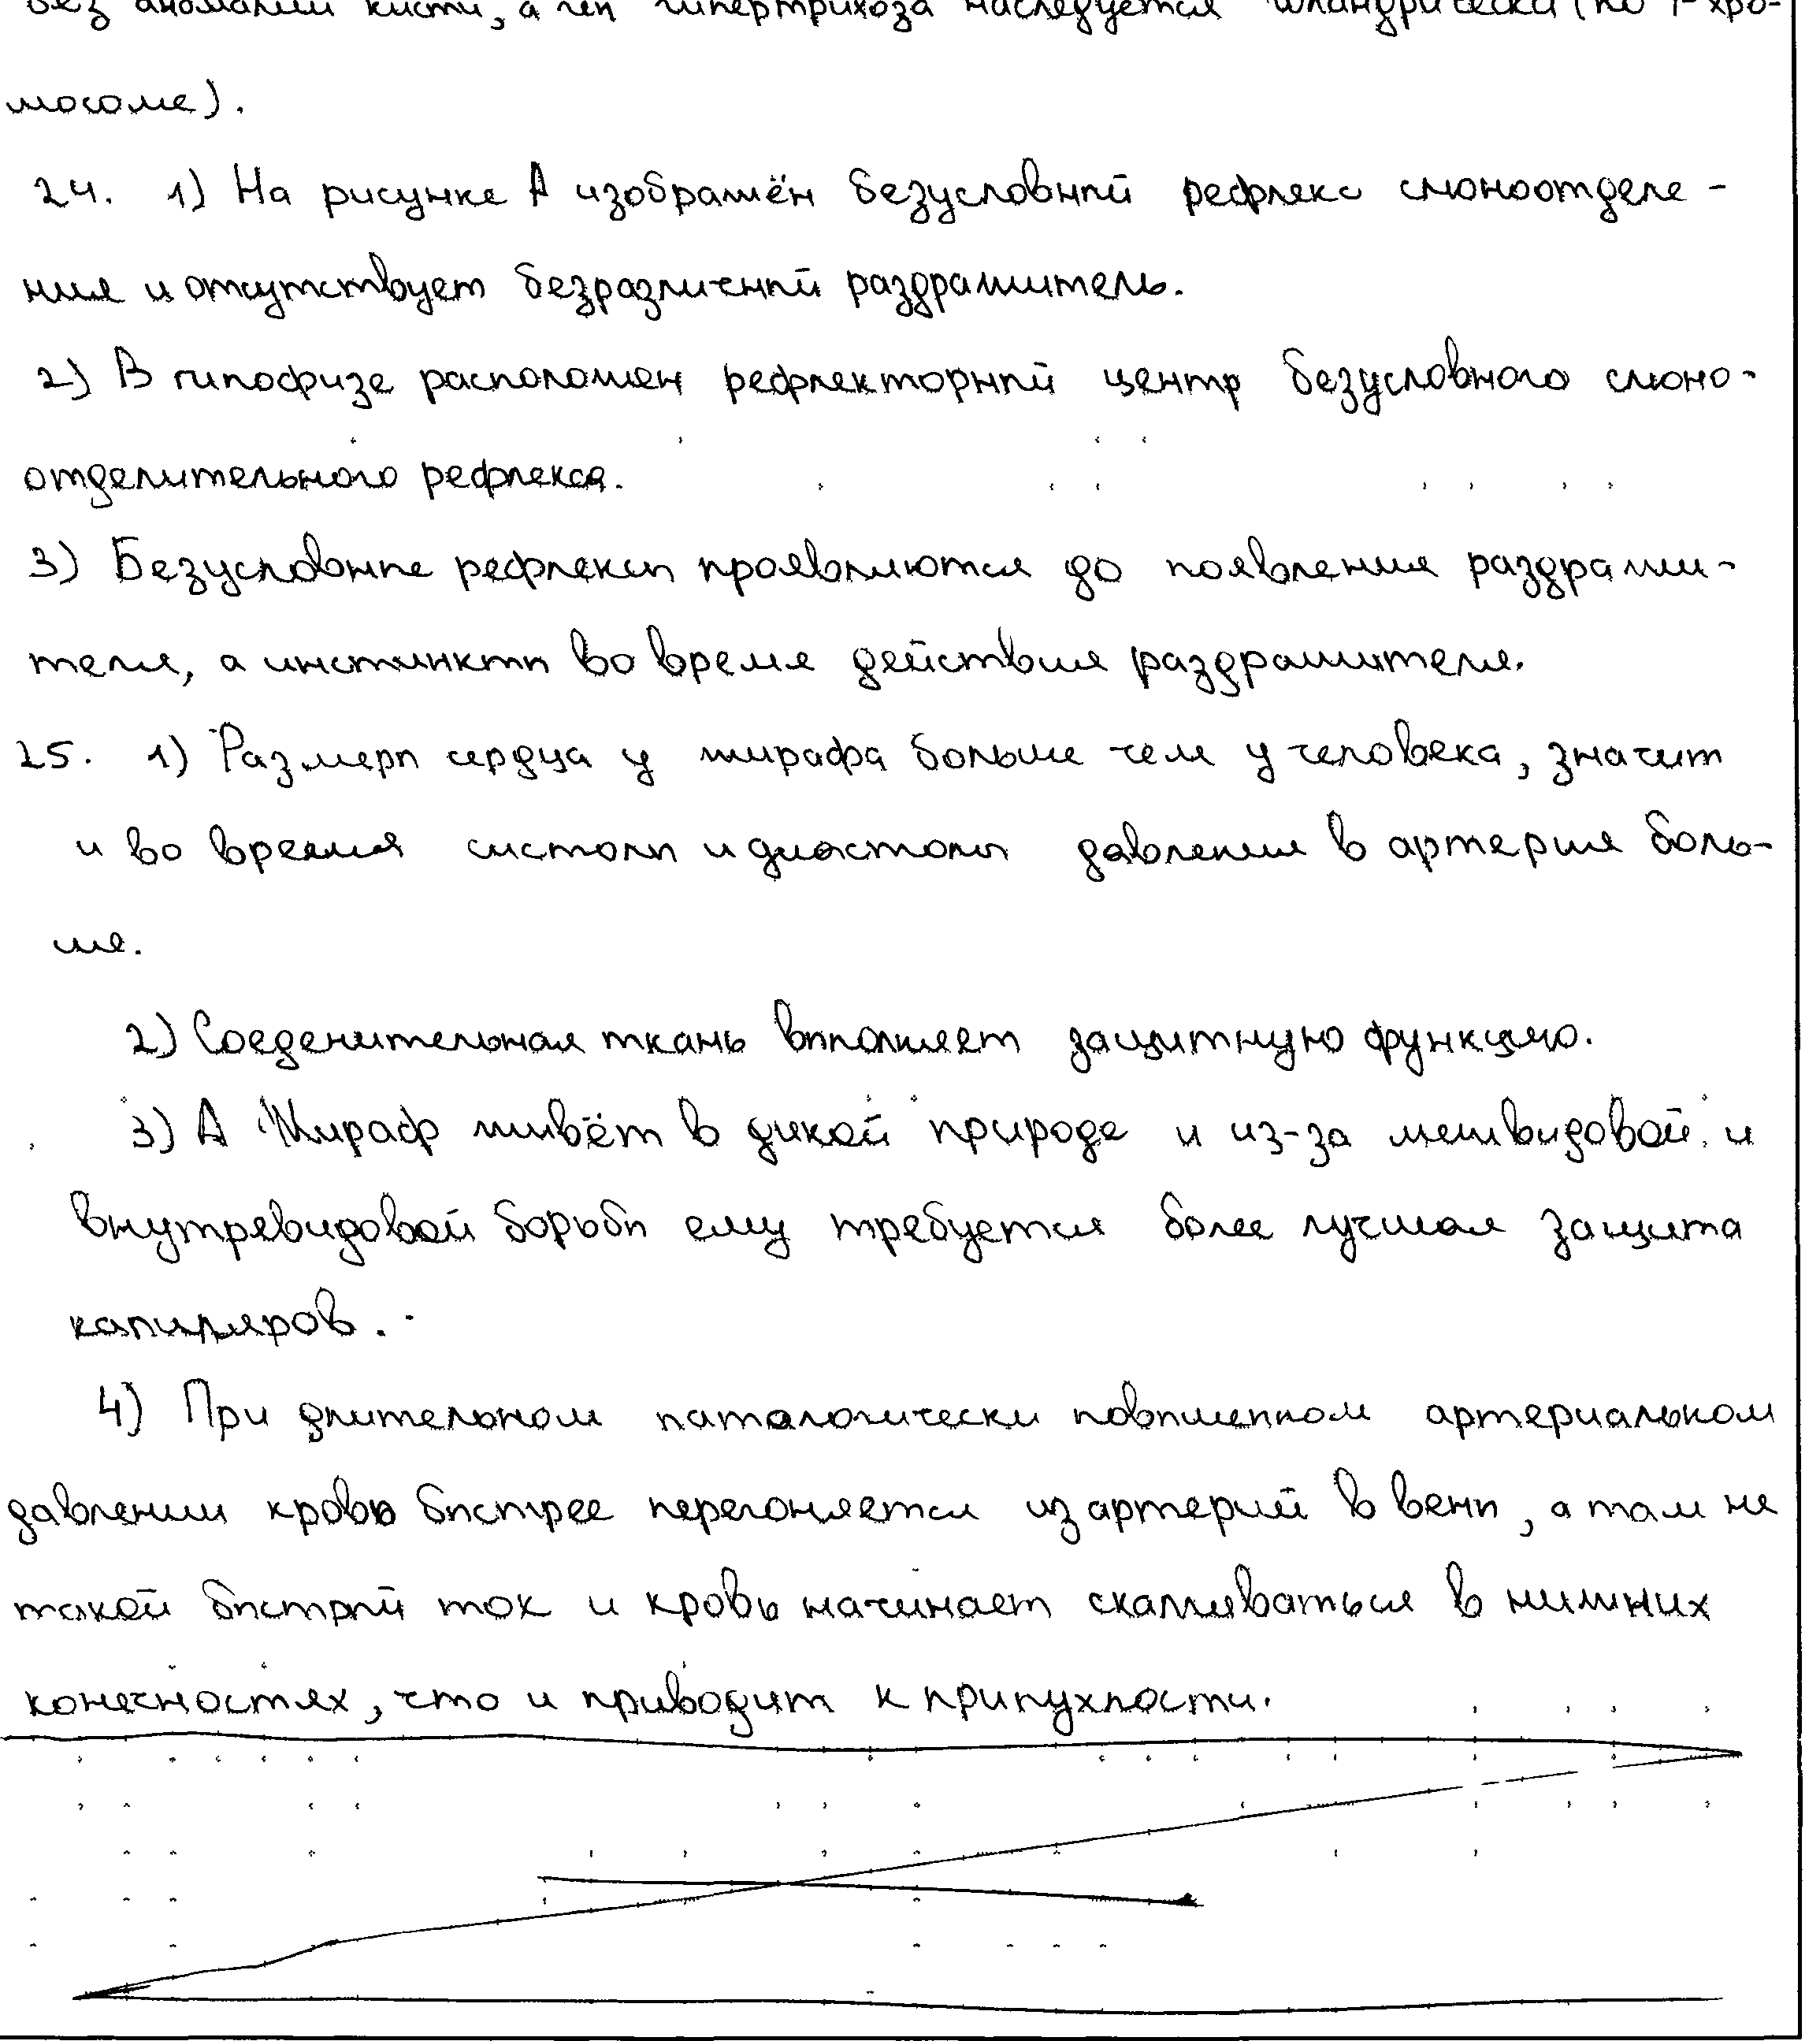 без аномалии кисти, а ген гипертрихоза наследуется (по Y-хро-
мосоме).
24. 1) На рисунке А изображён безусловный рефлекс слюноотделе-
ния и отсутствует безразличный раздражитель.
2) В гипофизе расположен рефлекторный центр безусловного слюно-
отделительного рефлекса.
3) Безусловные рефлексы проявляются до появления раздражи-
теля, а инстинкты во время действия раздражителя.
25. 1) Размеры сердца у жирафа больше чем у человека, значит
и во время систолы и диастолы давление в артерия боль-
ше.
2) Соеденительная ткань выполняет защитную функцию.
3) А Жираф живёт в дикой природе и из-за межвидовой и
внутревидовой борьбы ему требуется более лучшая защита
капиляров.
4) При длительном паталогически повышенном артериальном
давлении кровь быстрее перегоняется из артерий в вены, а там не
такой быстрый ток и кровь начинает скапливаться в нижних
конечностях, что и приводит к припухлости.